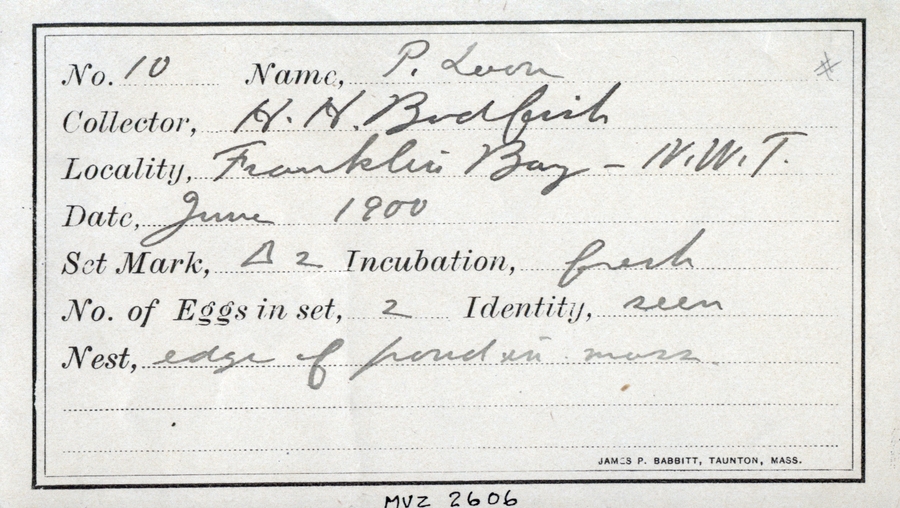 No. 10 Name, P. Loon #
Collector, H. H. Bodfish
Locality, Franklin Bay - N.W.T.
Date, June 1900
Set Mark, Δ 2 Incubation, fresh
No. of Eggs in set, 2 Identity, seen
Nest, edge of pond in moss
JAMES P. BABBITT, TAUNTON, MASS.
MVZ 2606